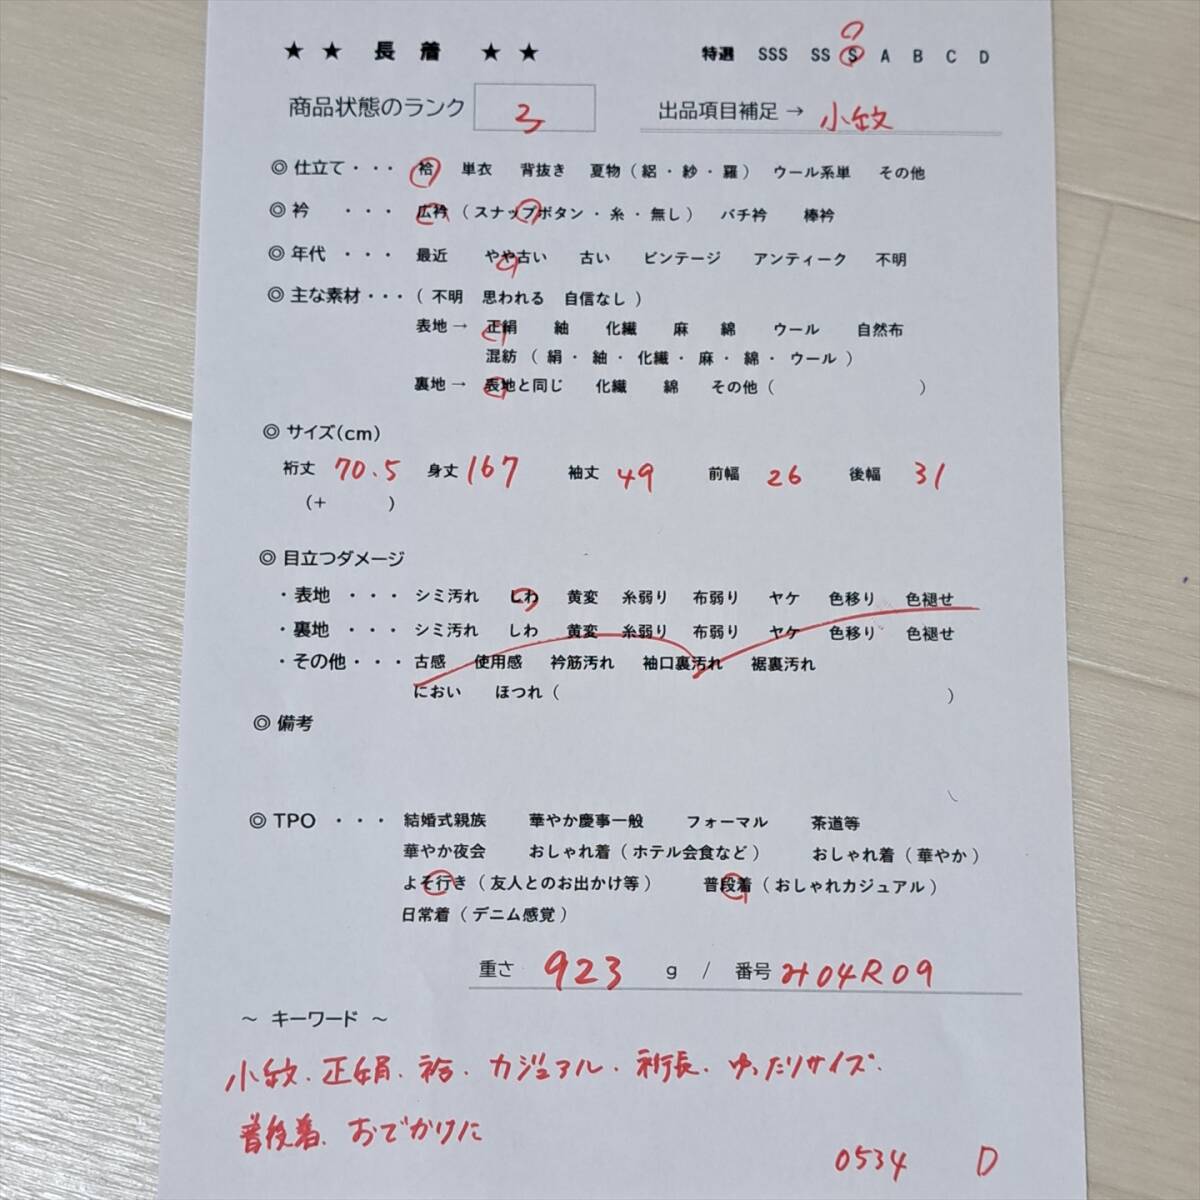 ★ ★ 長 着 ★ ★ 特選 SSS SS S A B C D
商品状態のランク 3 出品項目補足→ 小紋
◎ 仕立て・・・ 袷 単衣 背抜き 夏物（絽・紗・羅） ウール系単 その他
◎ 衿 ・・・ 広衿（スナップボタン・糸・無し） バチ衿 棒衿
◎ 年代 ・・・ 最近 やや古い 古い ビンテージ アンティーク 不明
◎ 主な素材・・・（不明 思われる 自信なし）
表地→ 正絹 紬 化繊 麻 綿 ウール 自然布
混紡（絹・紬・化繊・麻・綿・ウール）
裏地→ 表地と同じ 化繊 綿 その他（ ）
◎ サイズ(cm)
裄丈 70.5 身丈 167 袖丈 49 前幅 26 後幅 31
（+ ）
◎ 目立つダメージ
・表地 ・・・ シミ汚れ しわ 黄変 糸弱り 布弱り ヤケ 色移り 色褪せ
・裏地 ・・・ シミ汚れ しわ 黄変 糸弱り 布弱り ヤケ 色移り 色褪せ
・その他・・・ 古感 使用感 衿筋汚れ 袖口裏汚れ 裾裏汚れ
におい ほつれ（ ）
◎ 備考
◎ TPO ・・・ 結婚式親族 華やか慶事一般 フォーマル 茶道等
華やか夜会 おしゃれ着（ホテル会食など） おしゃれ着（華やか）
よそ行き（友人とのお出かけ等） 普段着（おしゃれカジュアル）
日常着（デニム感覚）
重さ 923 g / 番号 み04R09
～ キーワード ～
小紋. 正絹. 袷. カジュアル. 裄長. ゆったりサイズ.
普段着. おでかけに
0534 D